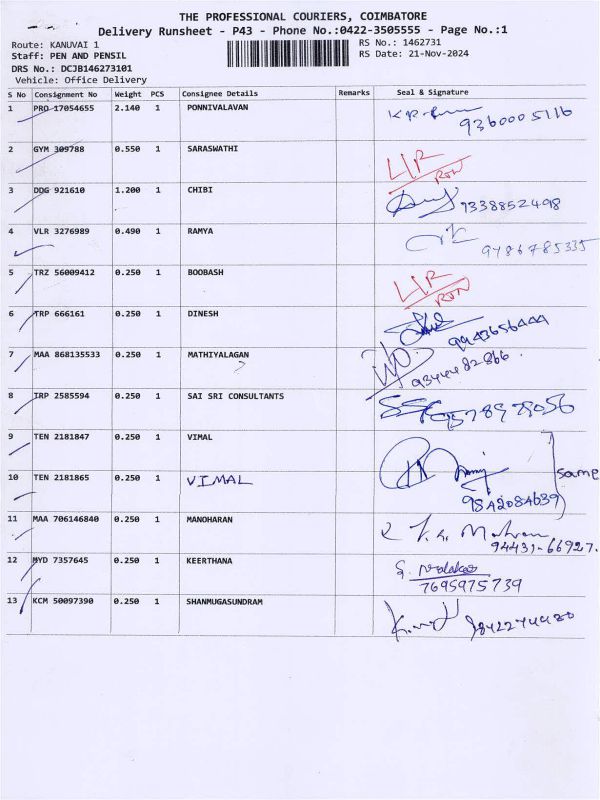 THE PROFESSIONAL COURIERS, COIMBATORE
Delivery Runsheet - P43 - Phone No.:0422-3505555 - Page No.:1
Route: KANUVAI 1
RS No.: 1462731
Staff: PEN AND PENSIL
RS Date: 21-Nov-2024
DRS No.: DCJB146273101
Vehicle: Office Delivery
S No Consignment No Weight PCS Consignee Details Remarks Seal & Signature
1 PRO 17054655 2.140 1 PONNIVALAVAN 9360005116
2 GYM 309788 0.550 1 SARASWATHI
3 DDG 921610 1.200 1 CHIBI 9338852498
4 VLR 3276989 0.490 1 RAMYA 9786785335
5 TRZ 56009412 0.250 1 BOOBASH
6 TRP 666161 0.250 1 DINESH 9943656444
7 MAA 868135533 0.250 1 MATHIYALAGAN 9344482866
8 IRP 2585594 0.250 1 SAI SRI CONSULTANTS
9 TEN 2181847 0.250 1 VIMAL
same
10 TEN 2181865 0.250 1 VIMAL 9842084639
11 MAA 706146840 0.250 1 MANOHARAN 94431-66927.
12 MYD 7357645 0.250 1 KEERTHANA 7695975739
13 KCM 50097390 0.250 1 SHANMUGASUNDRAM 9842274480